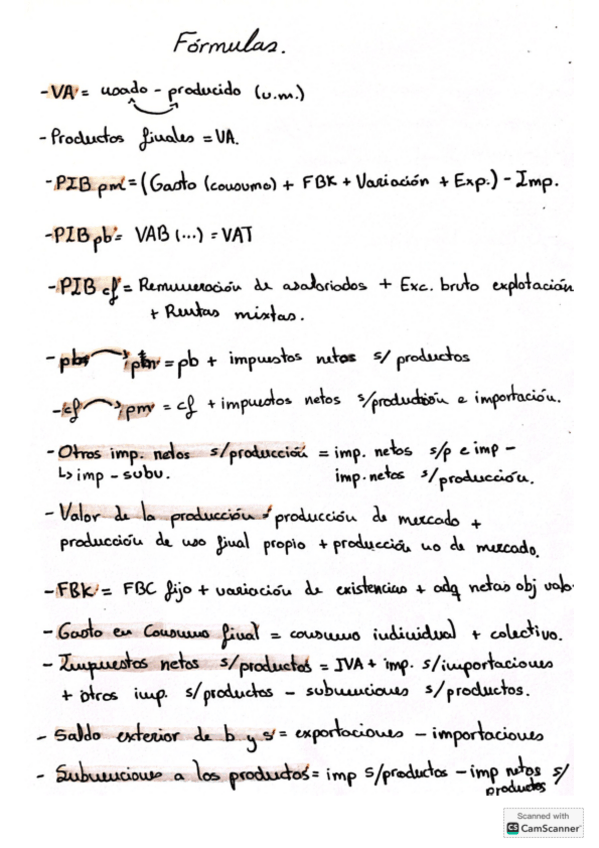 Fórmulas.
- VA = usado - producido (u.m.)
- Productos finales = VA.
- PIB pm = (Gasto (consumo) + FBK + Variación + Exp.) - Imp.
- PIB pb = VAB (...) = VAT
- PIB cf = Remuneración de asalariados + Exc. bruto explotación
+ Rentas mixtas.
- pb pm = pb + impuestos netos s/ productos
- cf pm = cf + impuestos netos s/producción e importación.
- Otros imp. netos s/producción = imp. netos s/p e imp -
↳ imp - subu. imp. netos s/producción.
- Valor de la producción = producción de mercado +
producción de uso final propio + producción no de mercado.
- FBK = FBC fijo + variación de existencias + adq netas obj valo.
- Gasto en Consumo final = consumo individual + colectivo.
- Impuestos netos s/productos = IVA + imp. s/importaciones
+ otros imp. s/productos - subvenciones s/productos.
- Saldo exterior de b y s = exportaciones - importaciones
- Subvenciones a los productos = imp s/productos - imp netos s/
productos
Scanned with
CS CamScanner